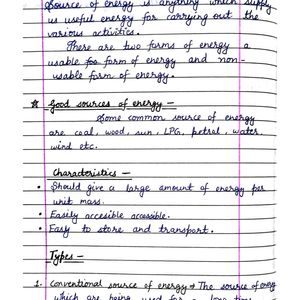 Source of energy is anything which supply
us useful energy for carrying out the
various activities.
There are two forms of energy a
usable foo form of energy and non-
usable form of energy.
☆ Good sources of energy -
Some common source of energy
are coal, wood, sun, LPG, petrol, water
wind etc.
Characteristics -
• Should give a large amount of energy per
unit mass.
• Easily accesible accessible.
• Easy to store and transport.
Types -
1. Conventional source of energy → The source of energy
which are being used for a long time